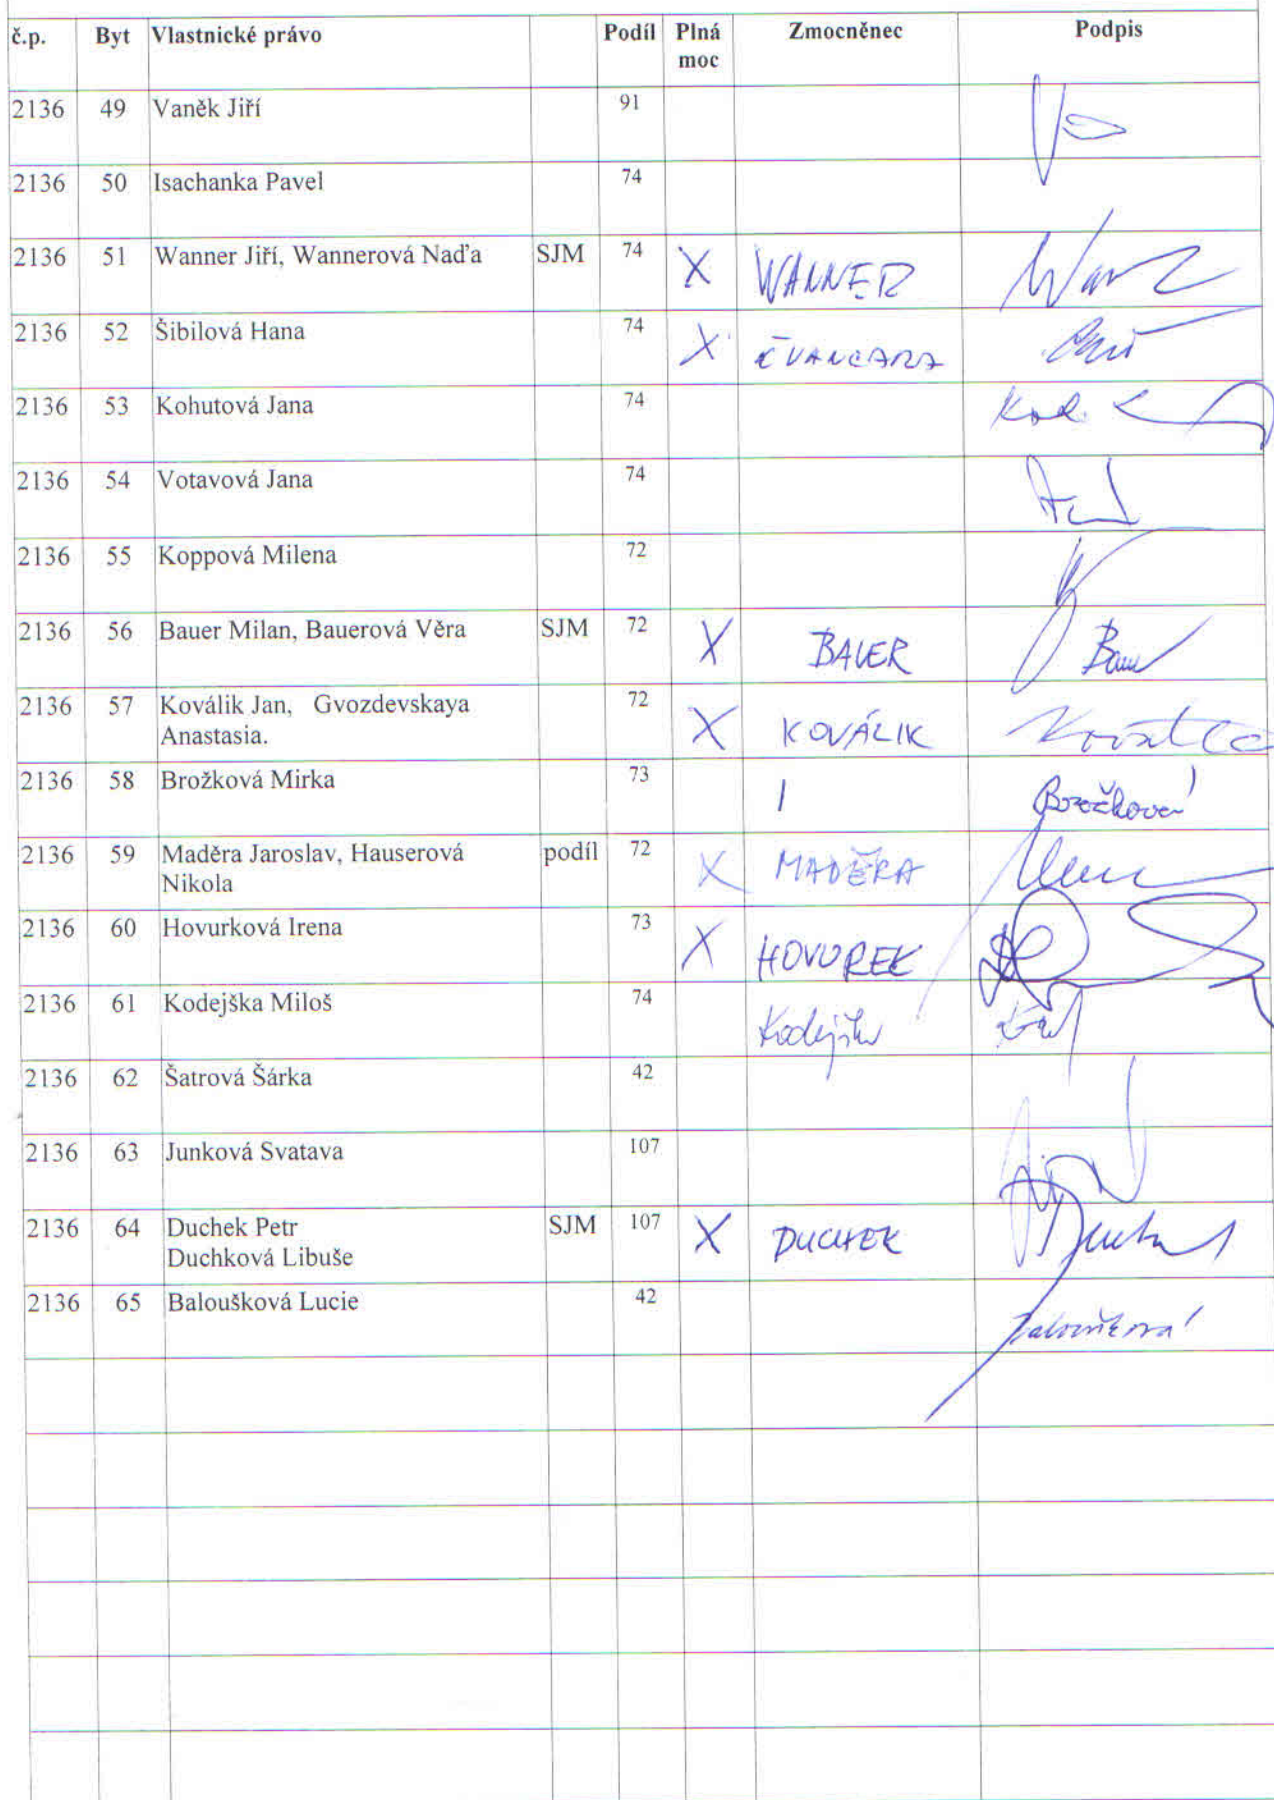 č.p. Byt Vlastnické právo Podíl Plná moc Zmocněnec Podpis
2136 49 Vaněk Jiří 91
2136 50 Isachanka Pavel 74
2136 51 Wanner Jiří, Wannerová Naďa SJM 74 X WANNER
2136 52 Šibilová Hana 74 X ČVANCARA
2136 53 Kohutová Jana 74
2136 54 Votavová Jana 74
2136 55 Koppová Milena 72
2136 56 Bauer Milan, Bauerová Věra SJM 72 X BAUER
2136 57 Koválik Jan, Gvozdevskaya 72 X KOVÁLIK
Anastasia.
2136 58 Brožková Mirka 73
2136 59 Maděra Jaroslav, Hauserová podíl 72 X MADĚRA
Nikola
2136 60 Hovurková Irena 73 X HOVUREK
2136 61 Kodejška Miloš 74
2136 62 Šatrová Šárka 42
2136 63 Junková Svatava 107
2136 64 Duchek Petr SJM 107 X DUCHEK
Duchková Libuše
2136 65 Baloušková Lucie 42